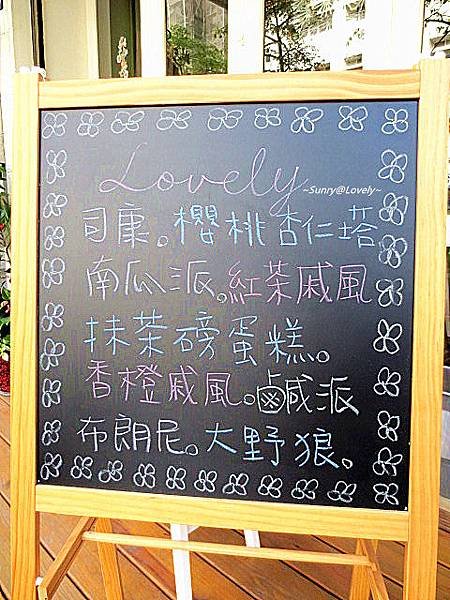 Lovely
~Sunry@Lovely~
司康。櫻桃杏仁塔
南瓜派。紅茶戚風
抹茶磅蛋糕。
香橙戚風。鹵鹹派
布朗尼。大野狼。